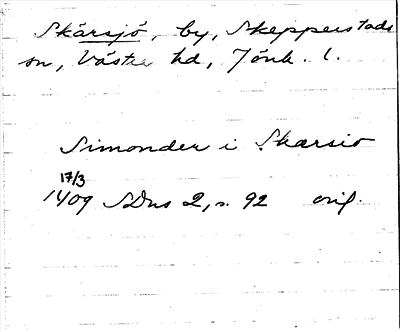 Skärsjö, by, Skepperstads
sn, Västra hd, Jönk. l.
Simonder i Skarsio
17/3
1409 SDns 2, s. 92 orig.